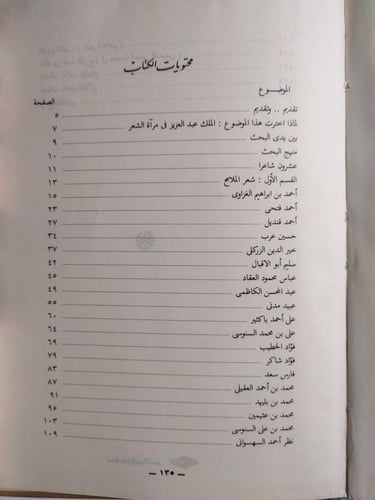 محتويات الكتاب
الموضوع الصفحة
تقديم .. وتقديم ٥
لماذا اخترت هذا الموضوع : الملك عبد العزيز فى مرآة الشعر ٧
بين يدى البحث ٩
منهج البحث ١٠
عشرون شاعرا ١١
القسم الأول : شعر الملامح ١٣
أحمد بن ابراهيم الغزاوى ١٥
أحمد فتحى ٢٣
أحمد قنديل ٢٧
حسين عرب ٣٤
خير الدين الزركلى ٣٧
سليم أبو الاقبال ٤٢
عباس محمود العقاد ٤٥
عبد المحسن الكاظمى ٤٩
عبيد مدنى ٥٥
على أحمد باكثير ٦٠
على بن محمد السنوسى ٦٤
فؤاد الخطيب ٦٩
فؤاد شاكر ٧٩
فارس سعد ٨٣
محمد بن أحمد العقيلى ٨٧
محمد بن بليهد ٩١
محمد بن عثيمين ٩٥
محمد بن على السنوسى ١٠٣
نظر أحمد السهسوانى ١٠٩
— ١٣٥ —